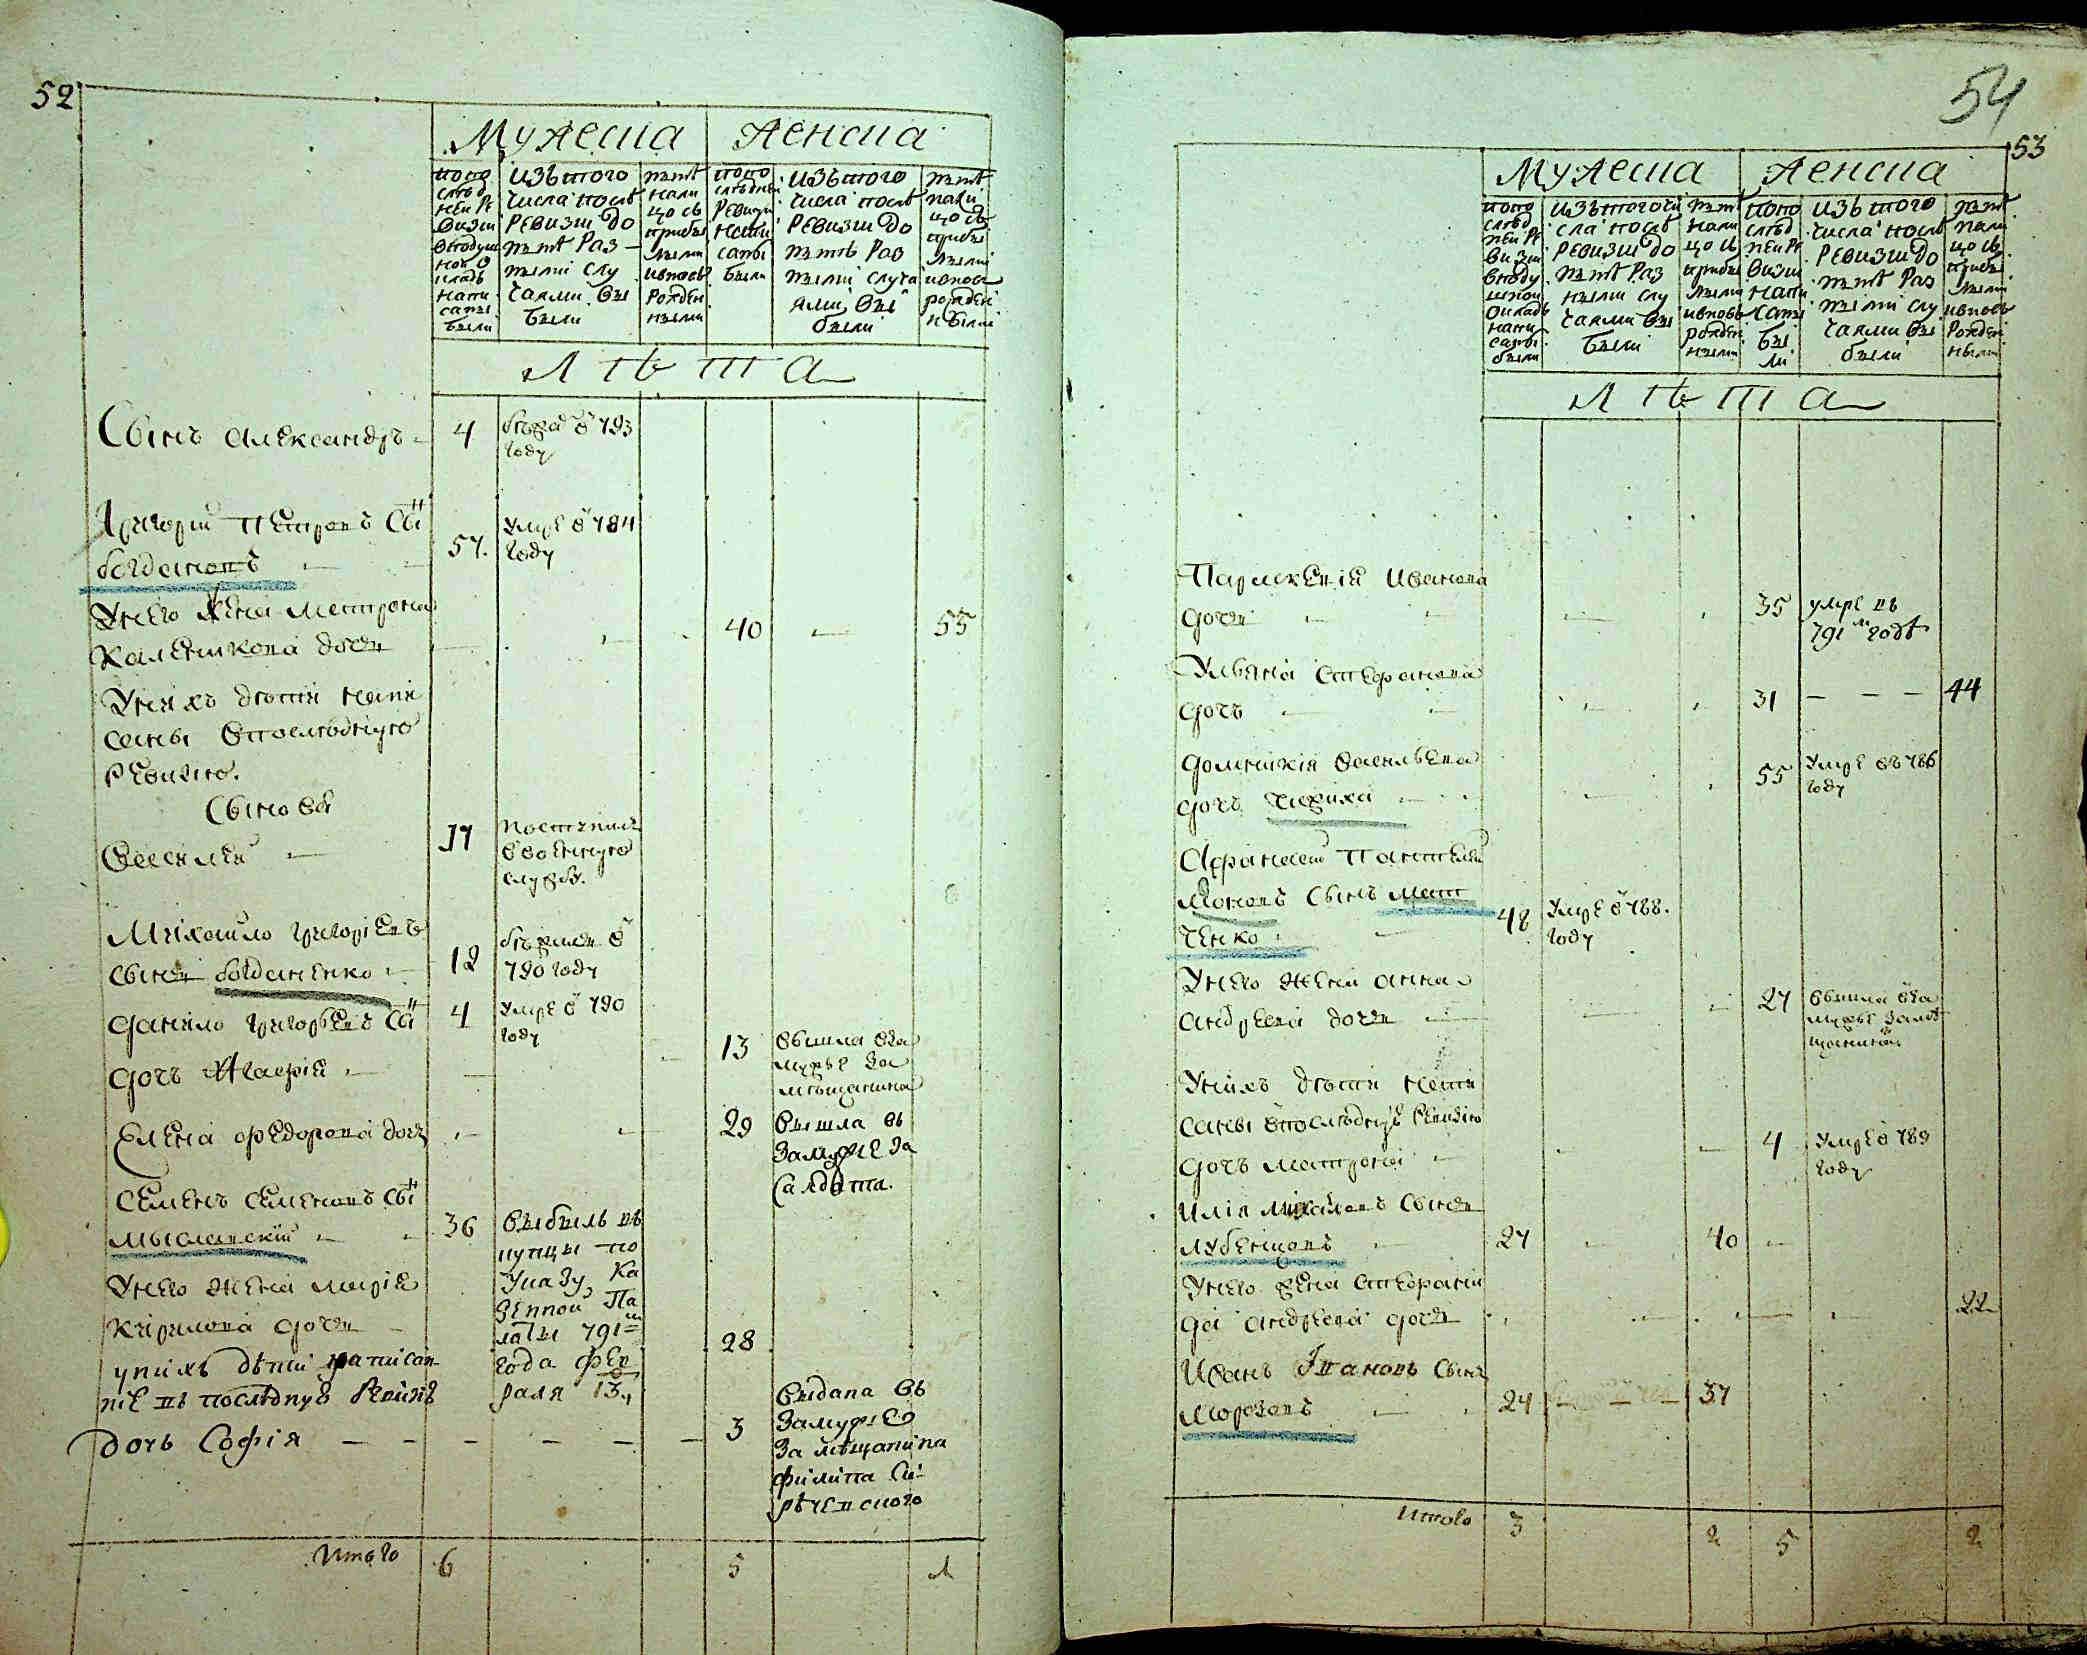 52
Мужеска Женска
По по
слѣд
ней Ре
визіи
въ поду
шной о
кладъ
напи
саны
были
изъ того
числа послѣ
Ревизіи до
нынѣ Раз
ными слу
чаями вы
были
нынѣ
нали
цо съ
прибы
лыми
и вновь
рожден
ными
по по
слѣдней
Ревизіи
напи
саны
были
изъ того
числа послѣ
Ревизіи до
нынѣ Раз
ными случа
ями вы
были
нынѣ
нали
цо съ
прибы
лыми
и вновь
рожден
ными
Лѣта
Сынъ Александръ 4 бѣжал в 793
году
Григорій Петровъ сы
Богдановъ 57. Умре в 784
году
У него жена Матрона
Калѣникова дочь 40 55
У нихъ дѣти напи
саны в последнюю
Ревизию.
Сыновья
Василей 17 поступилъ
в военную
службу.
Михайло Григоріевъ
сынъ Богданенко 12 бѣжалъ в
790 году
Данило Григорьевъ сы 4 Умре в 790
году
дочь Агафія 13 вышла в за
мужье за
мѣщанина
Елена Федорова дочь 29 вышла въ
замужье за
Салдата.
Семенъ Семеновъ сы
Мысловскій 36 выбылъ въ
купцы по
Указу Ка
зенной Па
латы 791
года фев
раля 13
У него жена Марія
Кирилова дочь 28
у нихъ дѣти написан
ніе въ послѣднуе Ревизіе
дочь Софія 3 выдана въ
замужье
за мѣщанина
филипа
Итого 6 5 1
54
53
Мужеска Женска
по по
слѣд
ней Ре
визіи
в поду
шной
окладъ
напи
саны
были
изъ того чи
сла послѣ
Ревизіи до
нынѣ Раз
ными слу
чаями вы
были
нынѣ
нали
цо съ
прибы
лыми
и вновь
рожден
ными
по по
слѣд
ней Ре
визіи
напи
саны
бы
ли
изъ того
числа послѣ
Ревизіи до
нынѣ Раз
ными слу
чаями вы
были
нынѣ
нали
цо съ
прибы
лыми
и вновь
Рожден
ными
Лѣта
Параскевія Иванова
дочь 35 умре въ
791 м годѣ
Ульяна Стефанова
дочъ 31 44
Домникія Васильева
дочъ 55 Умре въ 786
году
Афанасій Пантелей
моновъ сынъ Мат
ченко 48 Умре в 788.
году
У него жена Анна
Андреева дочь 27 вышла в за
мужье за мѣ
щанина
У нихъ дѣти напи
саны в последнуе Ревизию
дочъ Матрона 4 Умре в 789
году
Илія Михайловъ сынъ
Лубенцовъ 27 40
У него жена Стефани
да Андреева дочь 22
Иванъ Ивановъ сынъ
Морозовъ 24 37
Итого 3 2 5 2